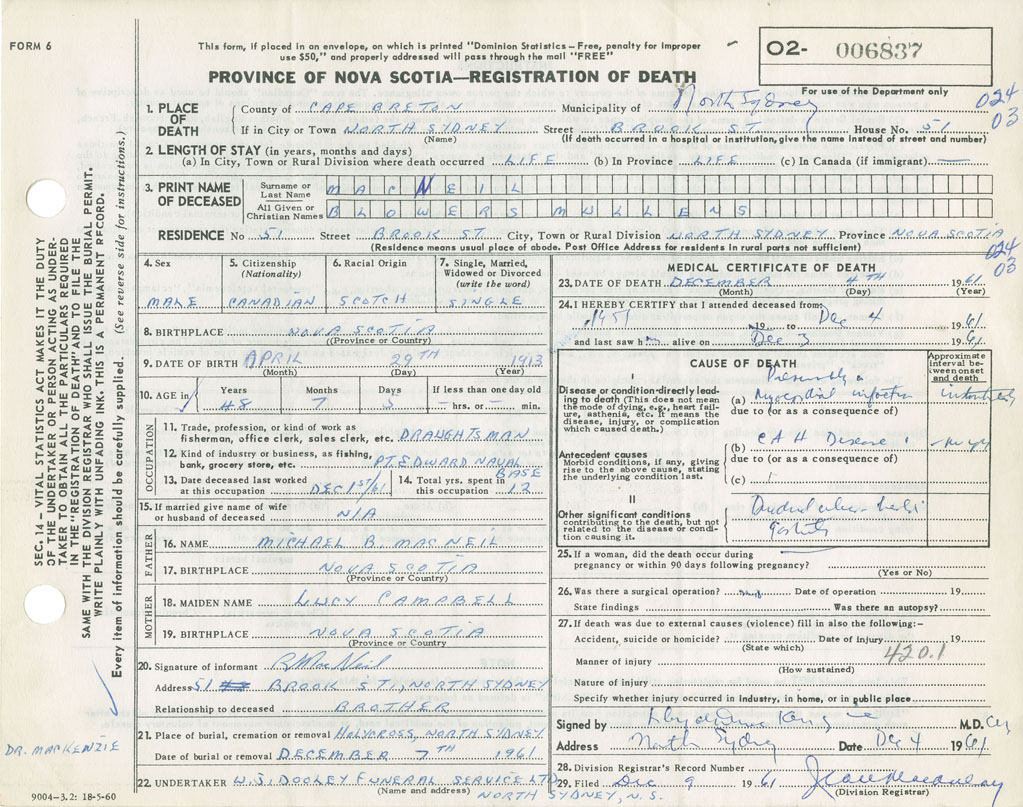 FORM 6
This form, if placed in an envelope, on which is printed "Dominion Statistics – Free, penalty for improper
use $50," and properly addressed will pass through the mail "FREE"
O2- 006837
For use of the Department only
PROVINCE OF NOVA SCOTIA—REGISTRATION OF DEATH
024
03
1. PLACE OF DEATH
County of CAPE BRETON Municipality of North Sydney
If in City or Town NORTH SYDNEY Street BROOK ST. House No. 51
(Name) (If death occurred in a hospital or institution, give the name instead of street and number)
2. LENGTH OF STAY (in years, months and days)
(a) In City, Town or Rural Division where death occurred LIFE (b) In Province LIFE (c) In Canada (if immigrant) —
3. PRINT NAME OF DECEASED
Surname or Last Name MACNEIL
All Given or Christian Names BLOWERS MULLENS
RESIDENCE No 51 Street BROOK ST. City, Town or Rural Division NORTH SYDNEY Province NOVA SCOTIA
(Residence means usual place of abode. Post Office Address for residents in rural parts not sufficient)
024
03
4. Sex MALE
5. Citizenship (Nationality) CANADIAN
6. Racial Origin SCOTCH
7. Single, Married, Widowed or Divorced (write the word) SINGLE
8. BIRTHPLACE NOVA SCOTIA
(Province or Country)
9. DATE OF BIRTH APRIL 29TH 1913
(Month) (Day) (Year)
10. AGE in Years 48 Months 7 Days 5 If less than one day old – hrs. or – min.
OCCUPATION
11. Trade, profession, or kind of work as
fisherman, office clerk, sales clerk, etc. DRAUGHTSMAN
12. Kind of industry or business, as fishing,
bank, grocery store, etc. PT. EDWARD NAVAL BASE
13. Date deceased last worked at this occupation DEC 1ST/61
14. Total yrs. spent in this occupation 12
15. If married give name of wife
or husband of deceased N/A
FATHER
16. NAME MICHAEL B. MACNEIL
17. BIRTHPLACE NOVA SCOTIA
(Province or Country)
MOTHER
18. MAIDEN NAME LUCY CAMPBELL
19. BIRTHPLACE NOVA SCOTIA
(Province or Country)
20. Signature of informant R MacNeil
Address 51 BROOK ST., NORTH SYDNEY
Relationship to deceased BROTHER
21. Place of burial, cremation or removal HOLYCROSS, NORTH SYDNEY
Date of burial or removal DECEMBER 7TH 1961
22. UNDERTAKER W.J. DOOLEY FUNERAL SERVICE LTD
(Name and address) NORTH SYDNEY, N.S.
MEDICAL CERTIFICATE OF DEATH
23. DATE OF DEATH DECEMBER 4TH 1961
(Month) (Day) (Year)
24. I HEREBY CERTIFY that I attended deceased from:
1951 19 to Dec 4 1961
and last saw h alive on Dec 3 1961
CAUSE OF DEATH
Approximate interval between onset and death
I
Disease or condition directly leading to death (This does not mean the mode of dying, e.g., heart failure, asthenia, etc. It means the disease, injury, or complication which caused death.)
(a) Presumably a Myocardial infarction
due to (or as a consequence of)
Antecedent causes
Morbid conditions, if any, giving rise to the above cause, stating the underlying condition last.
(b) Disease
due to (or as a consequence of)
(c)
II
Other significant conditions
contributing to the death, but not related to the disease or condition causing it.
25. If a woman, did the death occur during
pregnancy or within 90 days following pregnancy?
(Yes or No)
26. Was there a surgical operation? Date of operation 19
State findings Was there an autopsy?
27. If death was due to external causes (violence) fill in also the following:–
Accident, suicide or homicide? Date of injury 19
(State which)
420.1
Manner of injury
(How sustained)
Nature of injury
Specify whether injury occurred in industry, in home, or in public place
Signed by M.D.
Address North Sydney Date Dec 4 1961
28. Division Registrar's Record Number
29. Filed Dec 9 1961
(Division Registrar)
SEC. 14 – VITAL STATISTICS ACT MAKES IT THE DUTY
OF THE UNDERTAKER OR PERSON ACTING AS UNDER-
TAKER TO OBTAIN ALL THE PARTICULARS REQUIRED
IN THE "REGISTRATION OF DEATH" AND TO FILE THE
SAME WITH THE DIVISION REGISTRAR WHO SHALL ISSUE THE BURIAL PERMIT.
WRITE PLAINLY WITH UNFADING INK. THIS IS A PERMANENT RECORD.
Every item of information should be carefully supplied. (See reverse side for instructions.)
DR. MACKENZIE
9004–3.2: 18-5-60